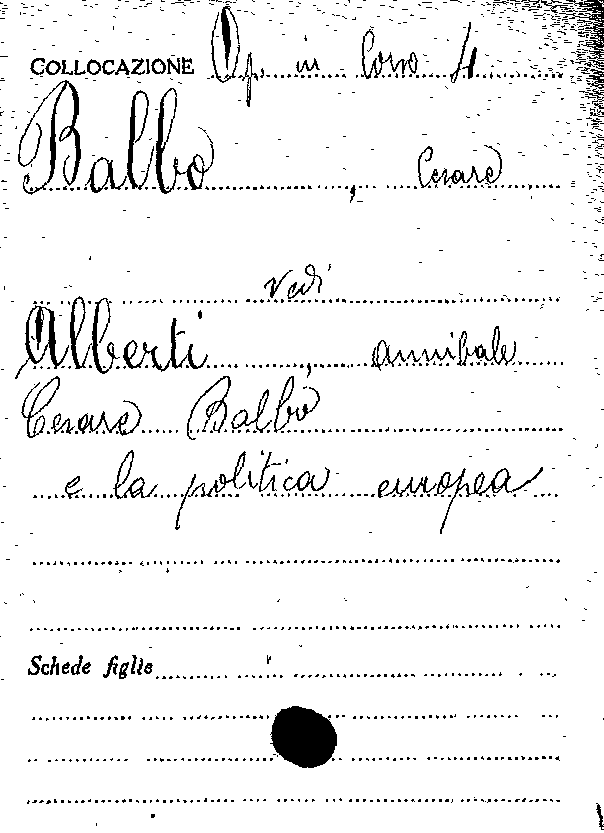 COLLOCAZIONE Op. in Corso 4
Balbo, Cesare
vedi
Alberti, Annibale
Cesare Balbo
e la politica europea
Schede figlie